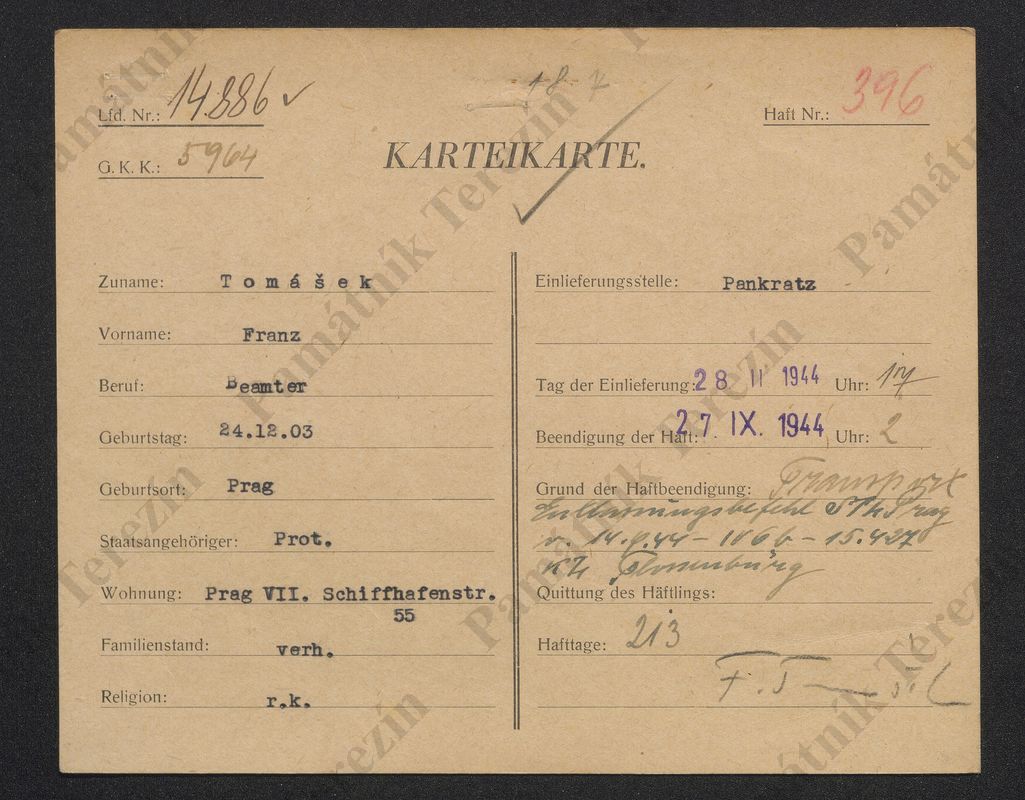 Lfd. Nr.: 14.886 ✓
18 7
Haft Nr.: 396
G. K. K.: 5964
KARTEIKARTE.
Zuname: Tomášek
Vorname: Franz
Beruf: Beamter
Geburtstag: 24.12.03
Geburtsort: Prag
Staatsangehöriger: Prot.
Wohnung: Prag VII. Schiffhafenstr.
55
Familienstand: verh.
Religion: r.k.
Einlieferungsstelle: Pankratz
Tag der Einlieferung: 28 II 1944 Uhr: 17
Beendigung der Haft: 27 IX. 1944 Uhr: 2
Grund der Haftbeendigung: Transport
Entlassungsbefehl Prag
v. 14.9.44 - - 15.427
KZ Flossenbürg
Quittung des Häftlings:
Hafttage: 213
Památník Terezín